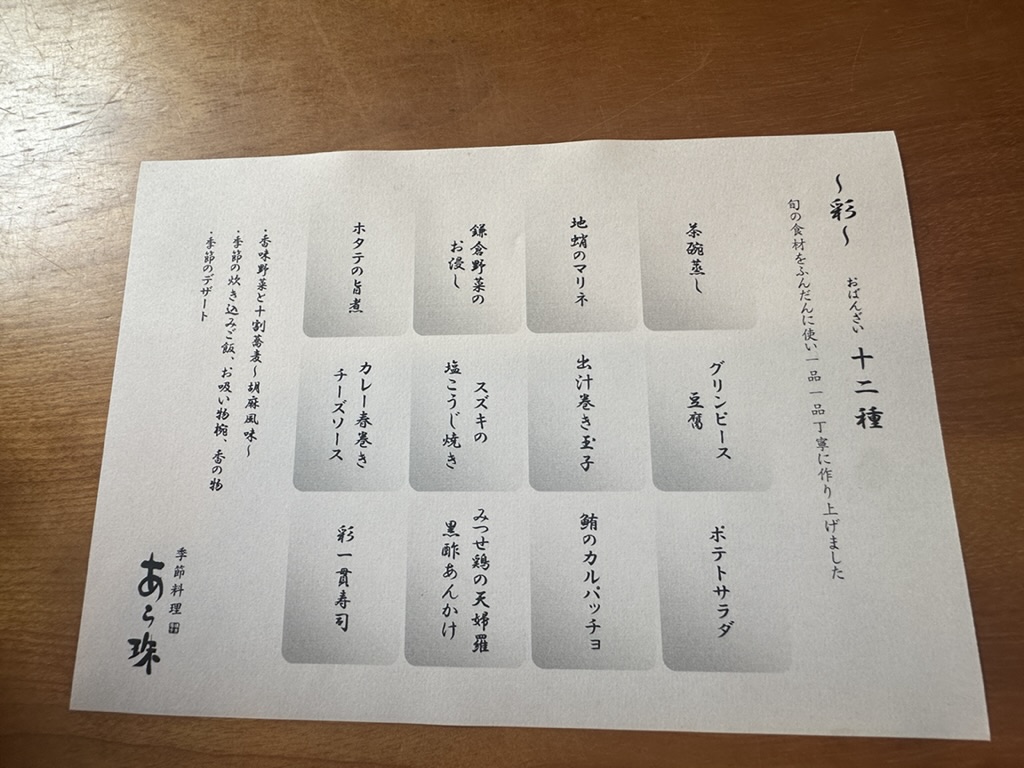 ～彩～
おばんざい 十二種
旬の食材をふんだんに使い一品一品丁寧に作り上げました
茶碗蒸し
グリンピース
豆腐
ポテトサラダ
地蛸のマリネ
出汁巻き玉子
鮪のカルパッチョ
鎌倉野菜の
お浸し
スズキの
塩こうじ焼き
みつせ鶏の天婦羅
黒酢あんかけ
ホタテの旨煮
カレー春巻き
チーズソース
彩一貫寿司
・香味野菜と十割蕎麦～胡麻風味～
・季節の炊き込みご飯、お吸い物椀、香の物
・季節のデザート
季節料理
あら珠